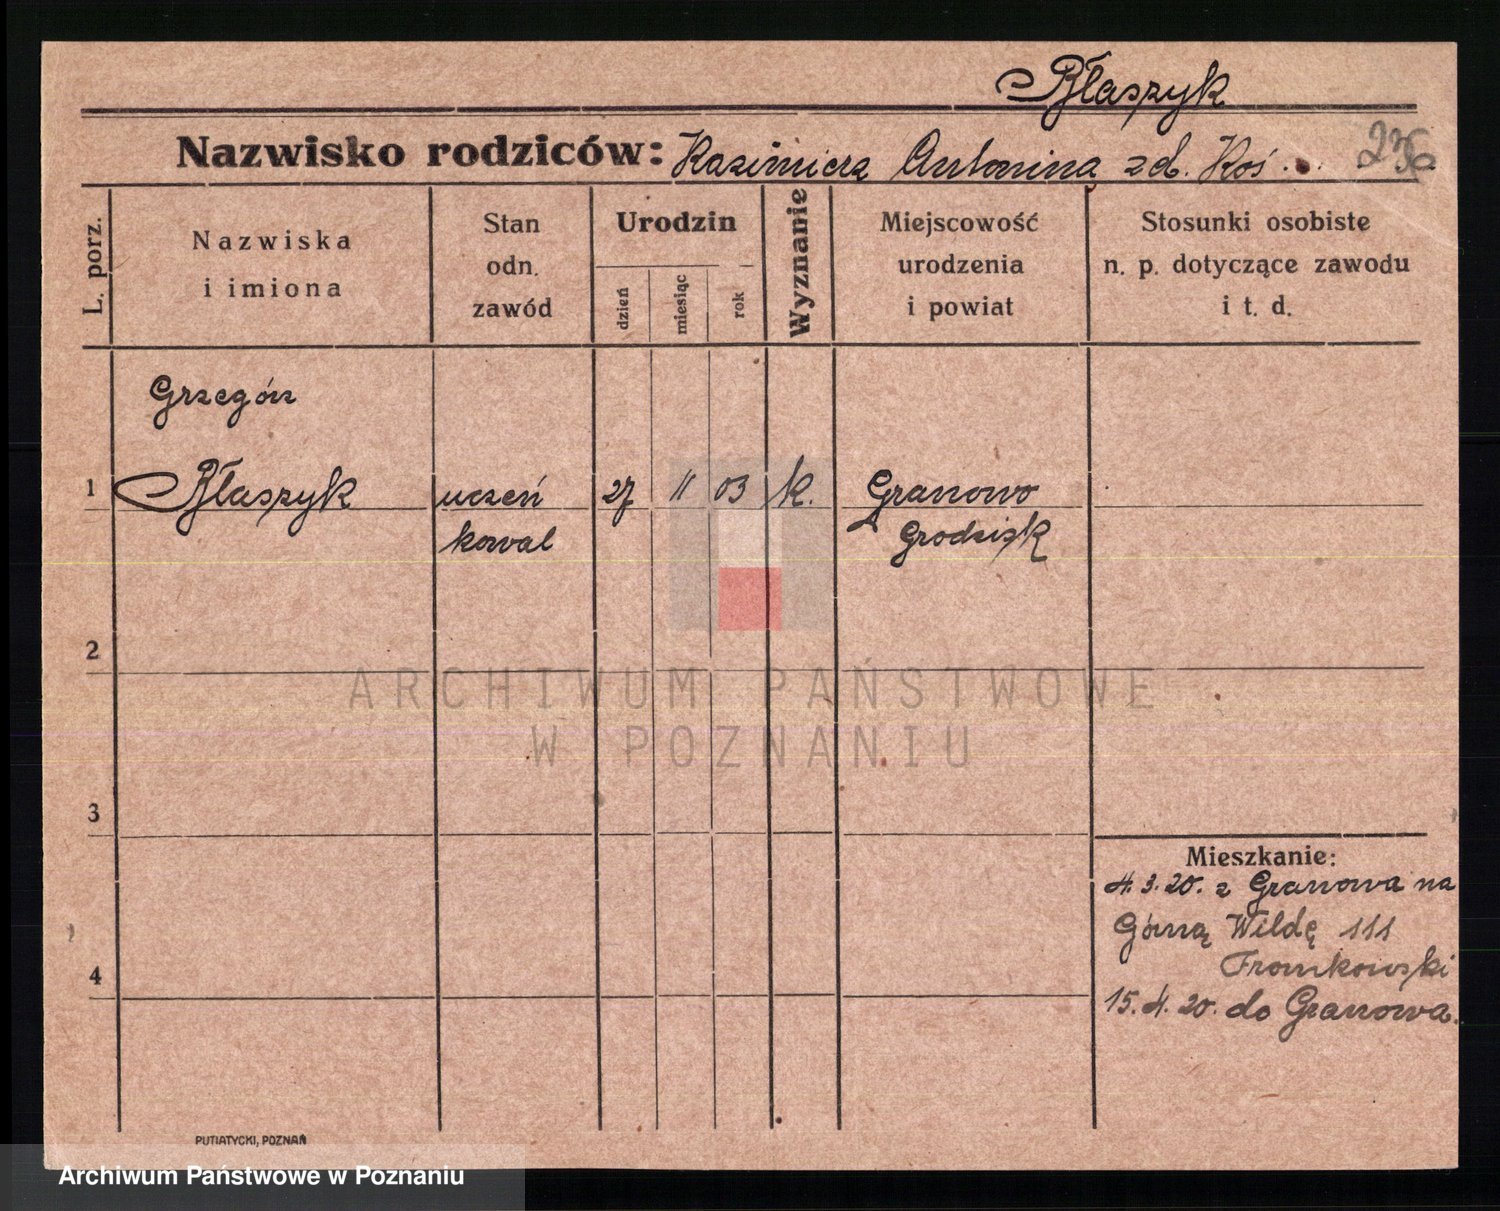 Błaszyk
Nazwisko rodziców: Kazimierz Antonina zd. Koś.
L. porz.
Nazwiska
i imiona
Stan
odn.
zawód
Urodzin
dzień
miesiąc
rok
Wyznanie
Miejscowość
urodzenia
i powiat
Stosunki osobiste
n. p. dotyczące zawodu
i t. d.
Grzegórz
1 Błaszyk uczeń 27 11 03 k. Granowo
kowal Grodzisk
2
ARCHIWUM PAŃSTWOWE
W POZNANIU
3
Mieszkanie:
4.3.20. z Granowa na
Górną Wildę 111
4
15.4.20. do Granowa.
PUTIATYCKI, POZNAŃ
Archiwum Państwowe w Poznaniu